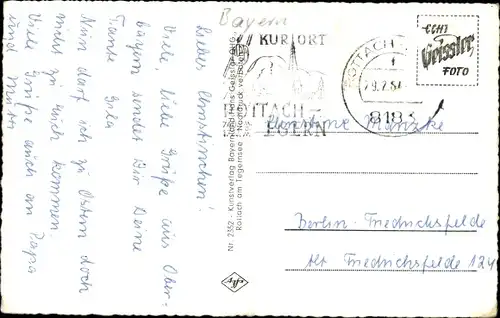 Bayern
Liebes Christinchen!
Viele liebe Grüße aus Ober-
bayern sendet Dir Deine
Tante Gela
Nun darf ich zu Ostern doch
nicht zu Euch kommen.
Viele Grüße auch an Papa
und Mutti
Nr. 2352 - Kunstverlag Bayernland Hans Geissler
Rottach am Tegernsee - Nachdruck verboten
Agfa
KURORT
ROTTACH-
EGERN
ROTTACH-
29.2.64
8183
ECHT
Geissler
FOTO
Christine
Berlin-Friedrichsfelde
Alt Friedrichsfelde 124